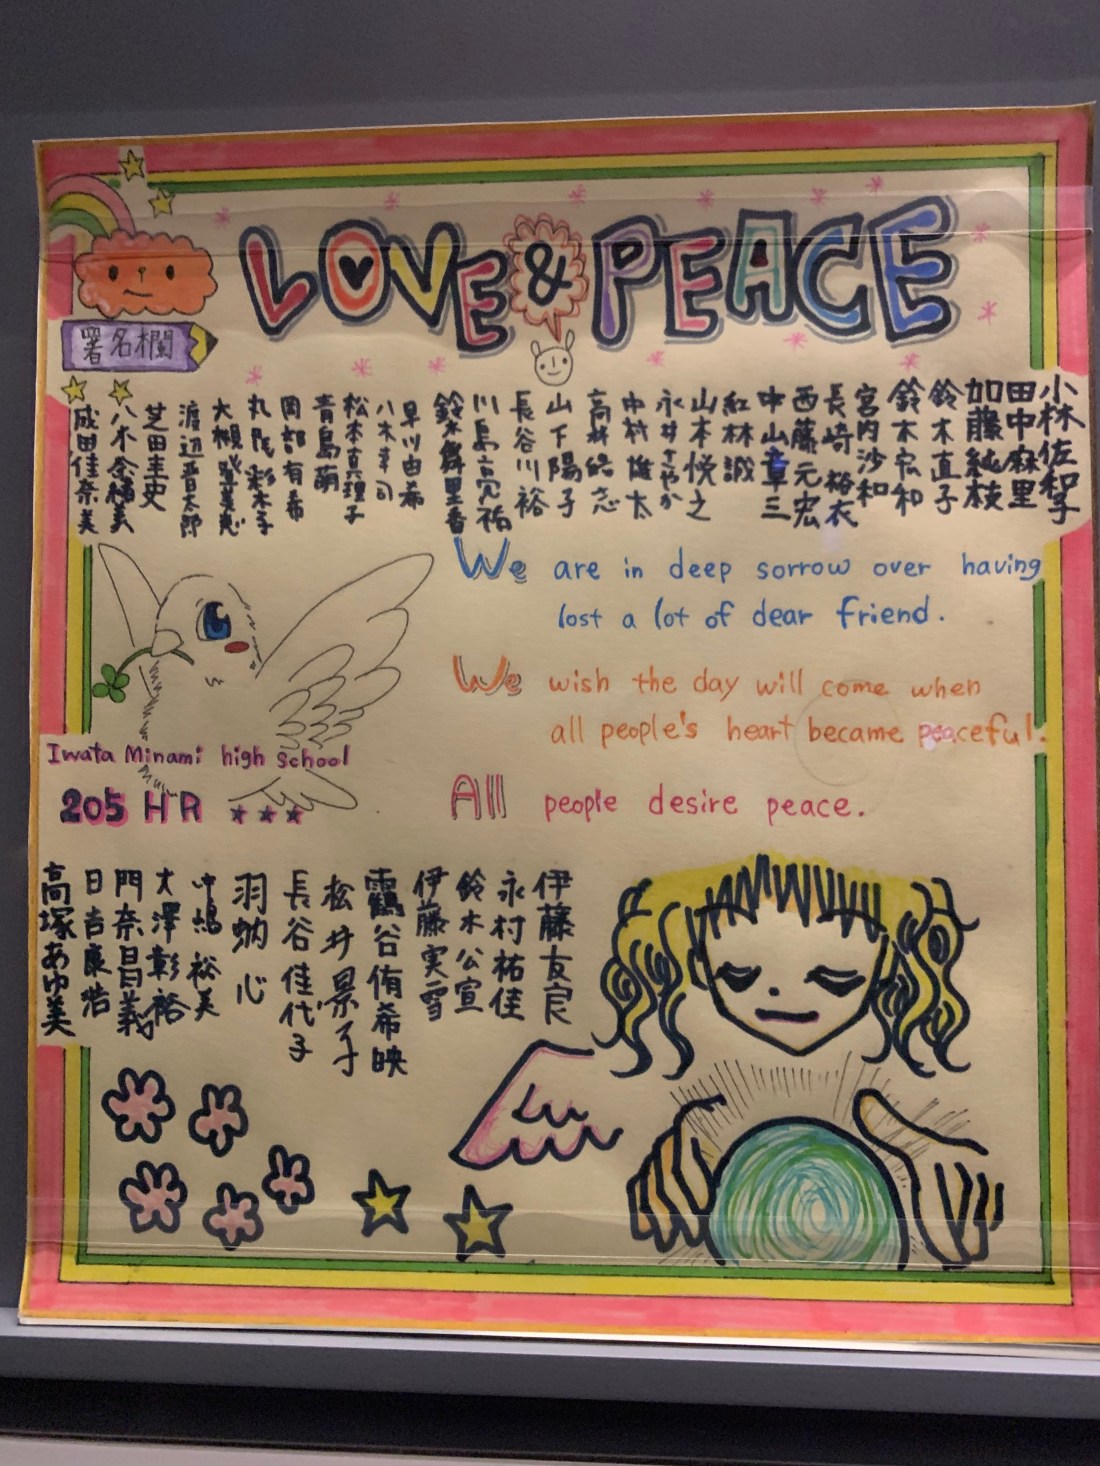 LOVE & PEACE
署名欄
小林佐和子
田中麻里
加藤純枝
鈴木直子
鈴木宏和
宮内沙和
長崎裕衣
西藤元宏
中山章三
紅林誠
山本悦之
永井さやか
中村雄太
高林
山下陽子
長谷川裕
川島亮祐
鈴木舞里香
早川由希
八木幸司
松本真理子
青島萌
岡部有希
丸尾彩本子
大槻
渡辺晋太郎
芝田圭史
八木奈緒美
成田佳奈美
We are in deep sorrow over having
lost a lot of dear friend.
We wish the day will come when
all people's heart became peaceful.
All people desire peace.
Iwata Minami high school
205 HR
伊藤友良
永村祐佳
鈴木公宣
伊藤実雪
靏谷侑希映
松井景子
長谷佳代子
羽蚋心
中嶋裕美
大澤彰裕
門奈昌義
日吉康浩
高塚あゆ美